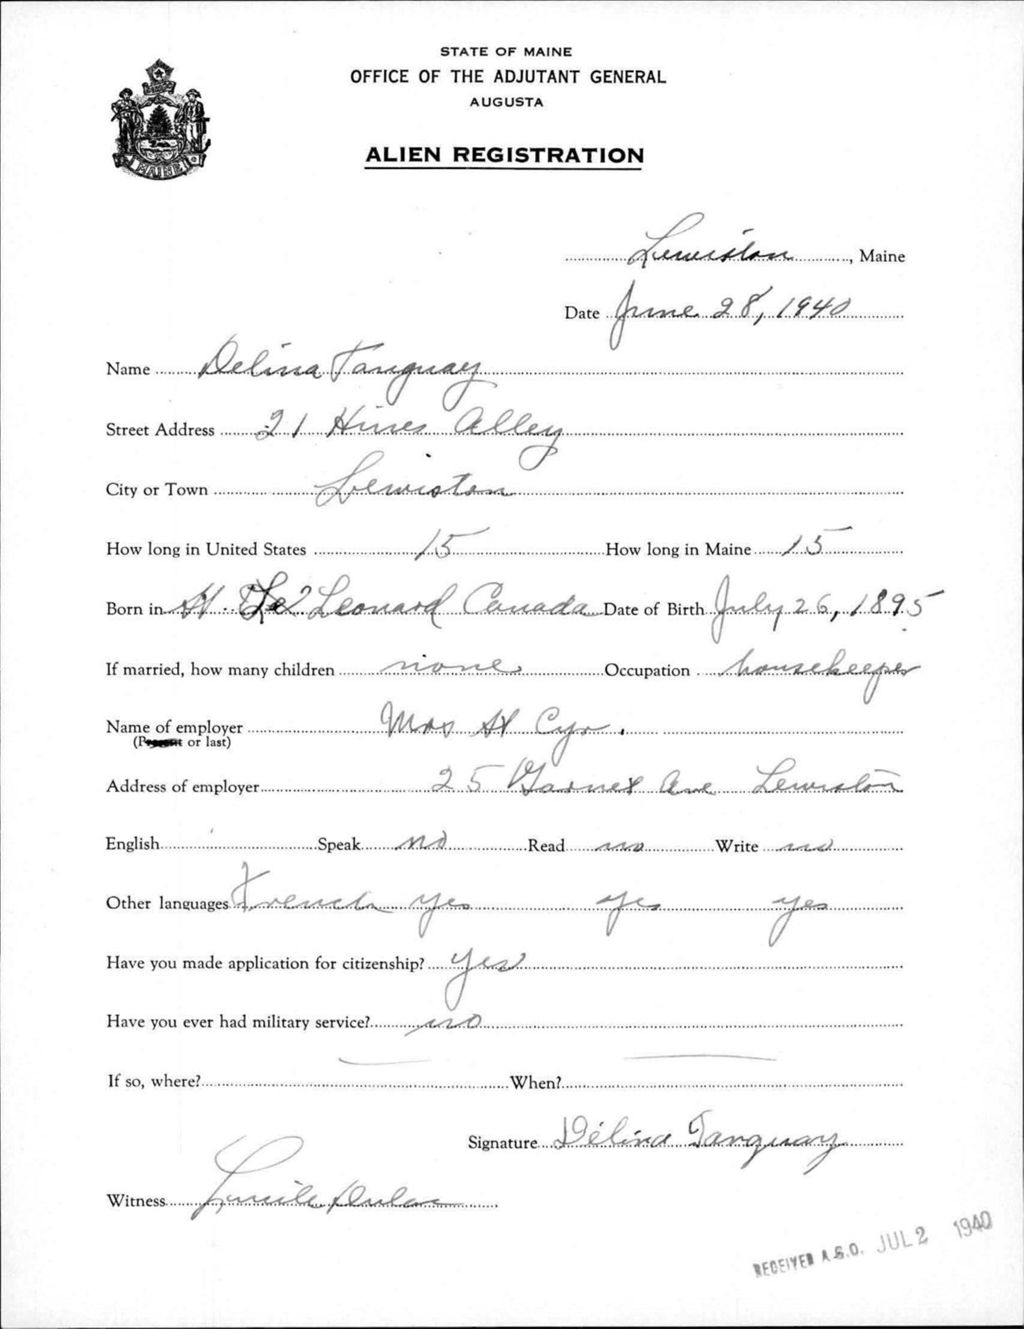 STATE OF MAINE
OFFICE OF THE ADJUTANT GENERAL
AUGUSTA
ALIEN REGISTRATION
MAINE
Lewiston, Maine
Date June 28, 1940
Name Delina Tanguay
Street Address 21 Hines Alley
City or Town Lewiston
How long in United States 15 How long in Maine 15
Born in St. Leonard Canada Date of Birth July 26, 1895
If married, how many children none Occupation housekeeper
Name of employer Mrs St Cyr.
(Present or last)
Address of employer 25 Garnet Ave Lewiston
English Speak no Read no Write no
Other languages French yes yes yes
Have you made application for citizenship? yes
Have you ever had military service? no
If so, where? When?
Signature Délina Tanguay
Witness Lucile
RECEIVED A.G.O. JUL 2 1940